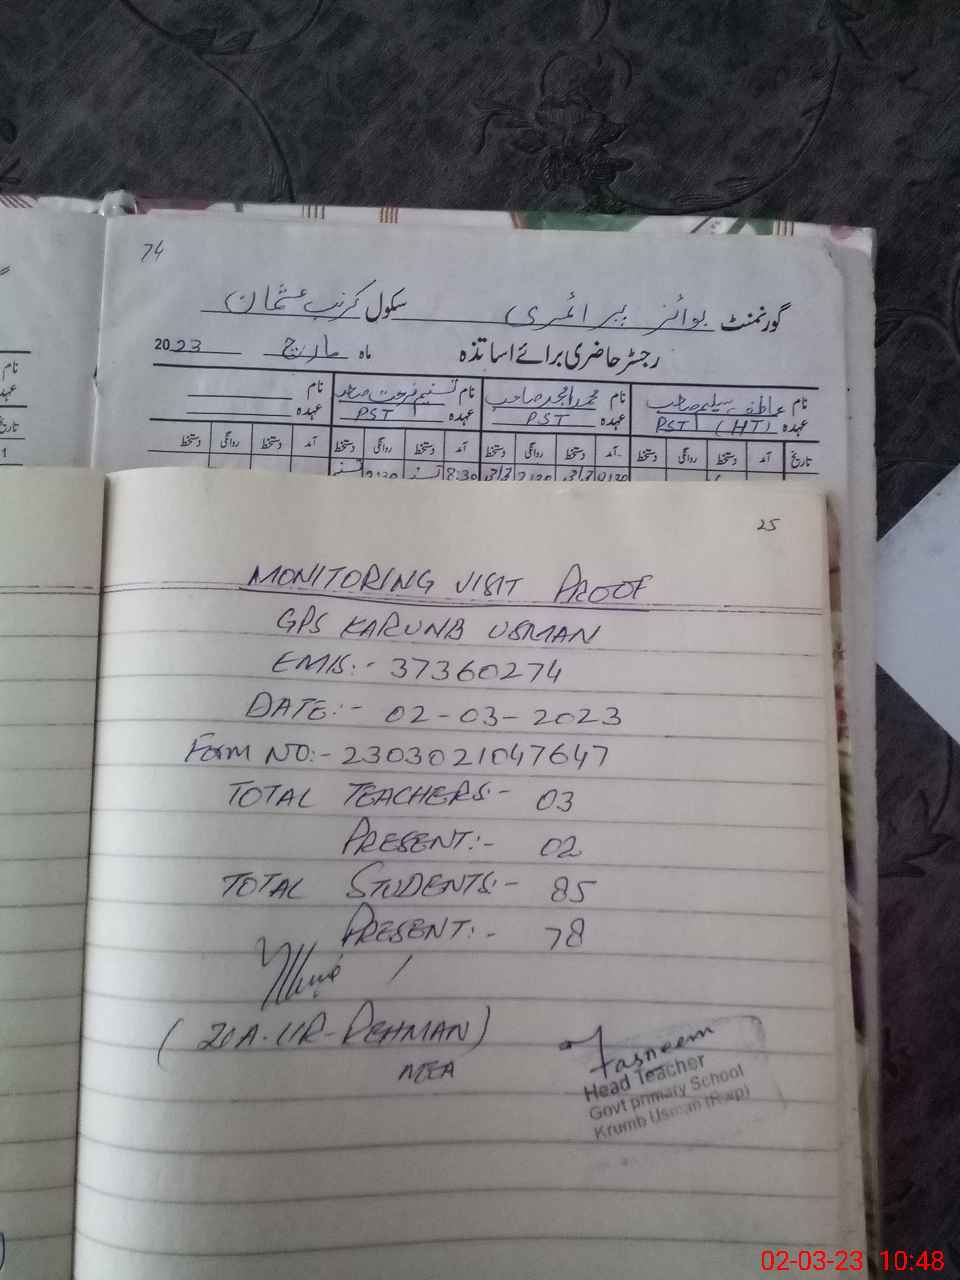 74
گورنمنٹ بوائز پرائمری سکول کرنب عثمان
رجسٹر حاضری برائے اساتذہ ماہ مارچ 2023
نام عاطف سلیم صاحب نام محمد امجد صاحب نام تسنیم فرحت صاحبہ نام
عہدہ PST (HT) عہدہ PST عہدہ PST عہدہ
تاریخ آمد دستخط روانگی دستخط آمد دستخط روانگی دستخط آمد دستخط روانگی دستخط آمد دستخط روانگی دستخط
8:30
25
MONITORING VISIT PROOF
GPS KARUNB USMAN
EMIS:- 37360274
DATE:- 02-03-2023
Form NO:- 2303021047647
TOTAL TEACHERS:- 03
PRESENT:- 02
TOTAL STUDENTS:- 85
PRESENT:- 78
(ZIA-UR-REHMAN)
MEA
Tasneem
Head Teacher
Govt primary School
Krumb Usman (Rwp)
02-03-23 10:48